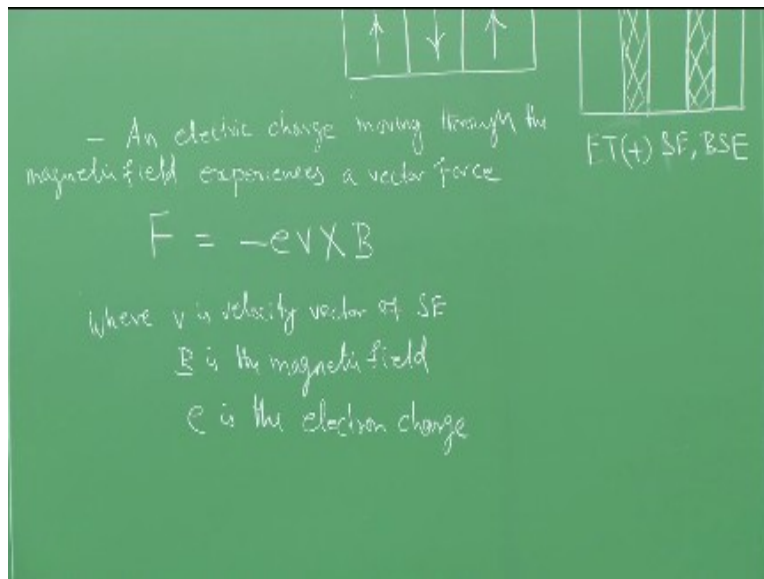 ET(+) SE, BSE
— An electric charge moving through the
magnetic field experiences a vector force
F = -ev X B
Where v is velocity vector of SE
B is the magnetic field
e is the electron charge